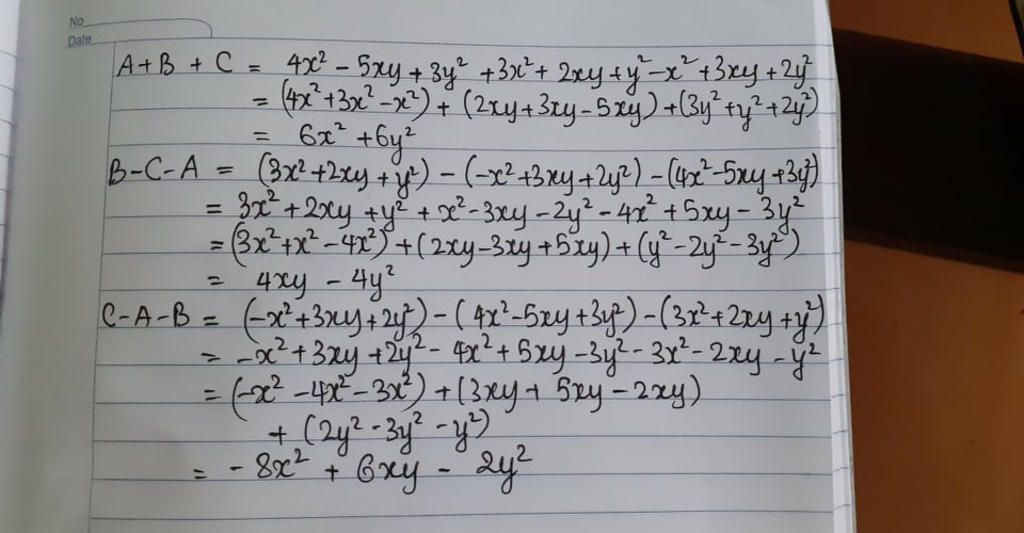 No
Date
A+B+C = 4x² - 5xy + 3y² + 3x² + 2xy + y² - x² + 3xy + 2y²
= (4x² + 3x² - x²) + (2xy + 3xy - 5xy) + (3y² + y² + 2y²)
= 6x² + 6y²
B-C-A = (3x² + 2xy + y²) - (-x² + 3xy + 2y²) - (4x² - 5xy + 3y²)
= 3x² + 2xy + y² + x² - 3xy - 2y² - 4x² + 5xy - 3y²
= (3x² + x² - 4x²) + (2xy - 3xy + 5xy) + (y² - 2y² - 3y²)
= 4xy - 4y²
C-A-B = (-x² + 3xy + 2y²) - (4x² - 5xy + 3y²) - (3x² + 2xy + y²)
= -x² + 3xy + 2y² - 4x² + 5xy - 3y² - 3x² - 2xy - y²
= (-x² - 4x² - 3x²) + (3xy + 5xy - 2xy)
+ (2y² - 3y² - y²)
= - 8x² + 6xy - 2y²